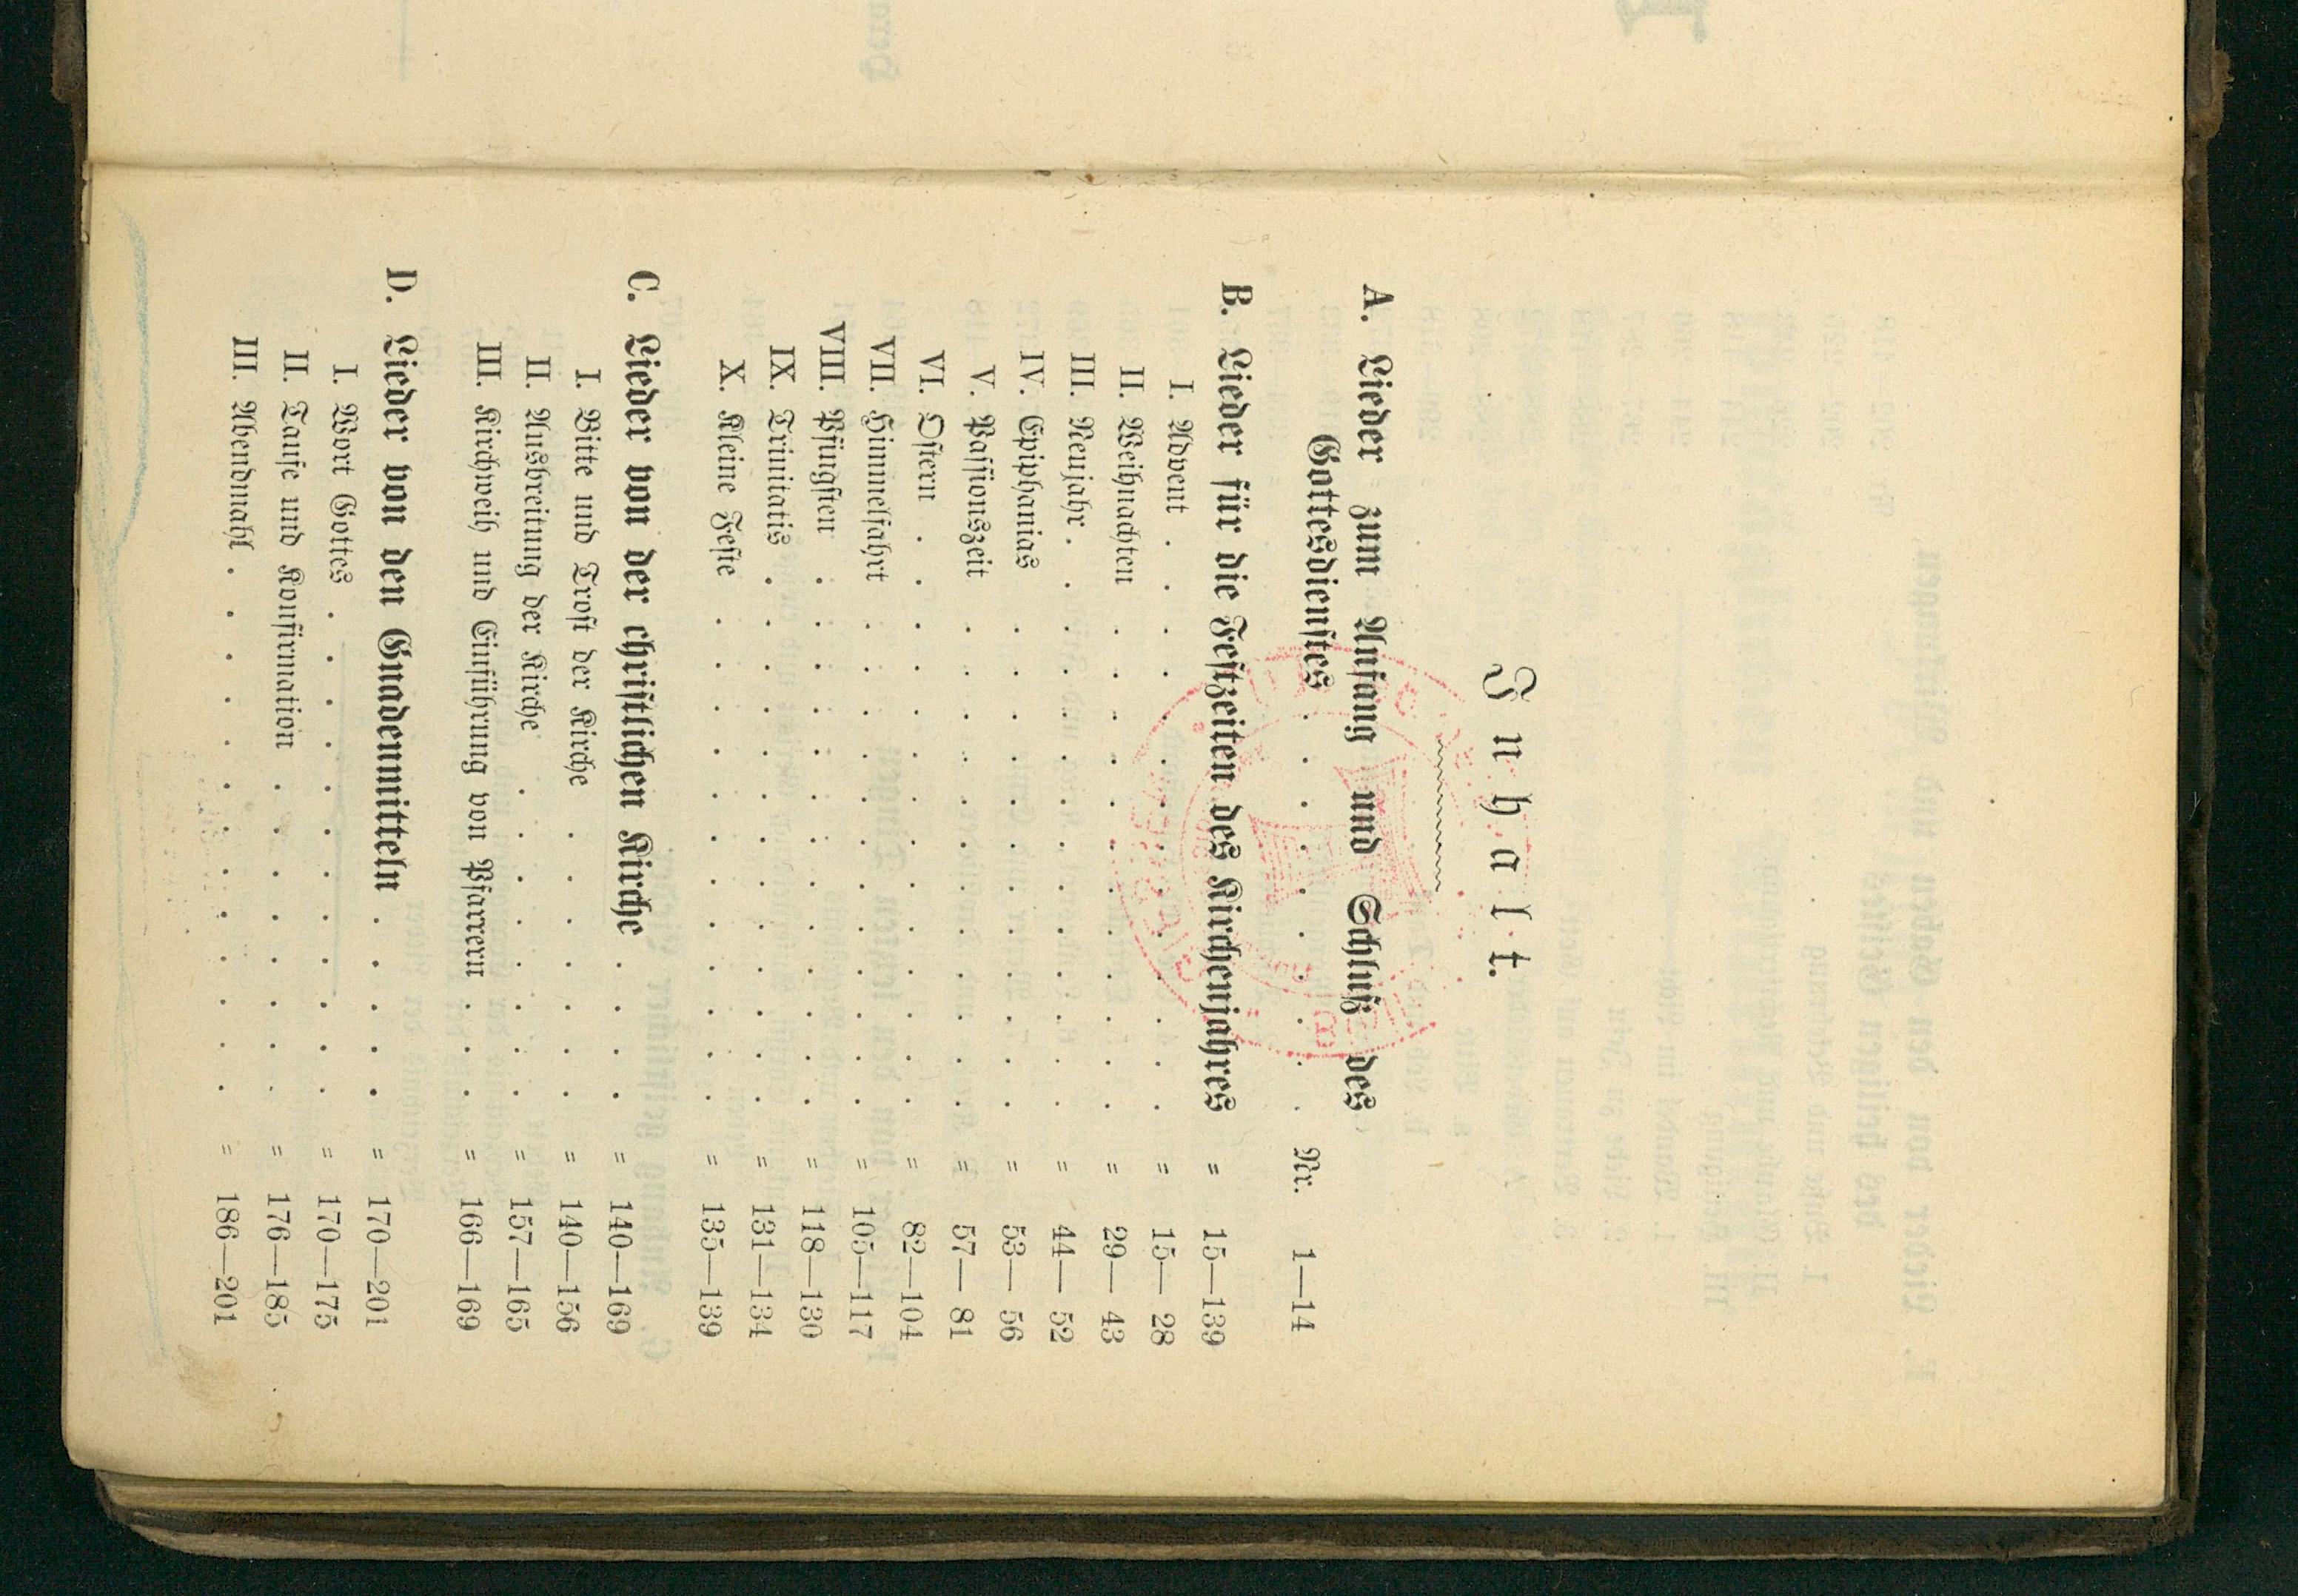 Inhalt.
A. Lieder zum Anfang und Schluß des
Gottesdienstes . . . . . . . . . . Nr. 1—14
B. Lieder für die Festzeiten des Kirchenjahres „ 15—139
I. Advent . . . . . . . . . . . . . „ 15— 28
II. Weihnachten . . . . . . . . . . . . „ 29— 43
III. Neujahr . . . . . . . . . . . . . „ 44— 52
IV. Epiphanias . . . . . . . . . . . . „ 53— 56
V. Passionszeit . . . . . . . . . . . . „ 57— 81
VI. Ostern . . . . . . . . . . . . . . „ 82—104
VII. Himmelfahrt . . . . . . . . . . . . „ 105—117
VIII. Pfingsten . . . . . . . . . . . . . „ 118—130
IX. Trinitatis . . . . . . . . . . . . . „ 131—134
X. Kleine Feste . . . . . . . . . . . . „ 135—139
C. Lieder von der christlichen Kirche . . . . „ 140—169
I. Bitte und Trost der Kirche . . . . . . . „ 140—156
II. Ausbreitung der Kirche . . . . . . . . „ 157—165
III. Kirchweih und Einführung von Pfarrern . . . „ 166—169
D. Lieder von den Gnadenmitteln . . . . . „ 170—201
I. Wort Gottes . . . . . . . . . . . . „ 170—175
II. Taufe und Konfirmation . . . . . . . . „ 176—185
III. Abendmahl . . . . . . . . . . . . . „ 186—201